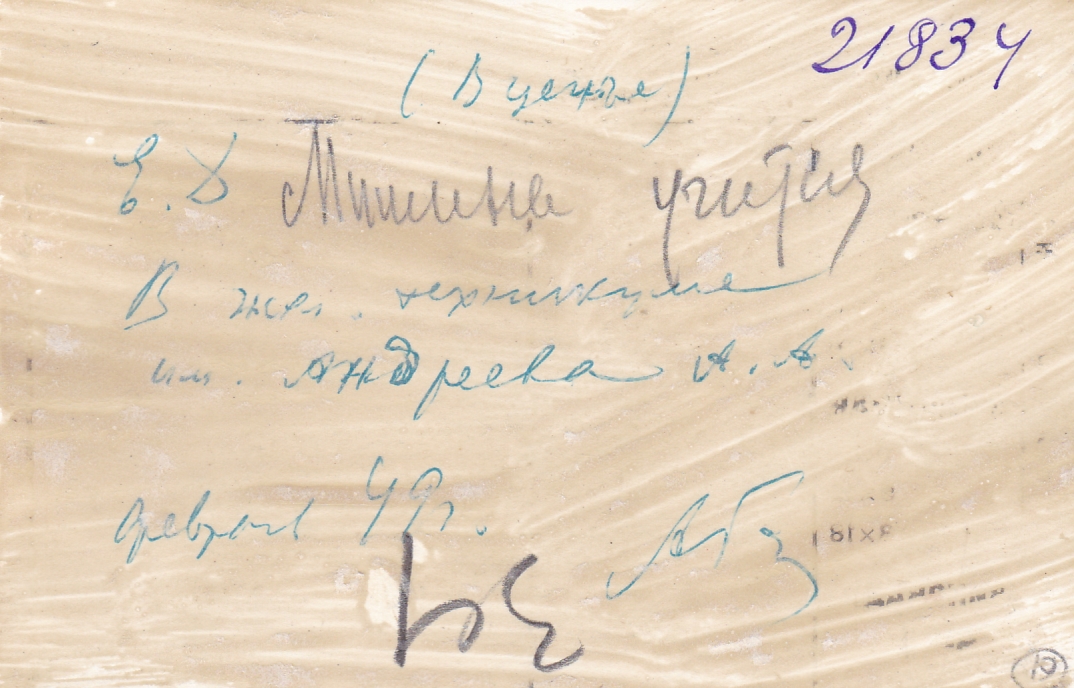 21834
(В центре)
Е. Д Мишина учится
В жел. техникуме
им. Андреева А. А.
февраль 49г.